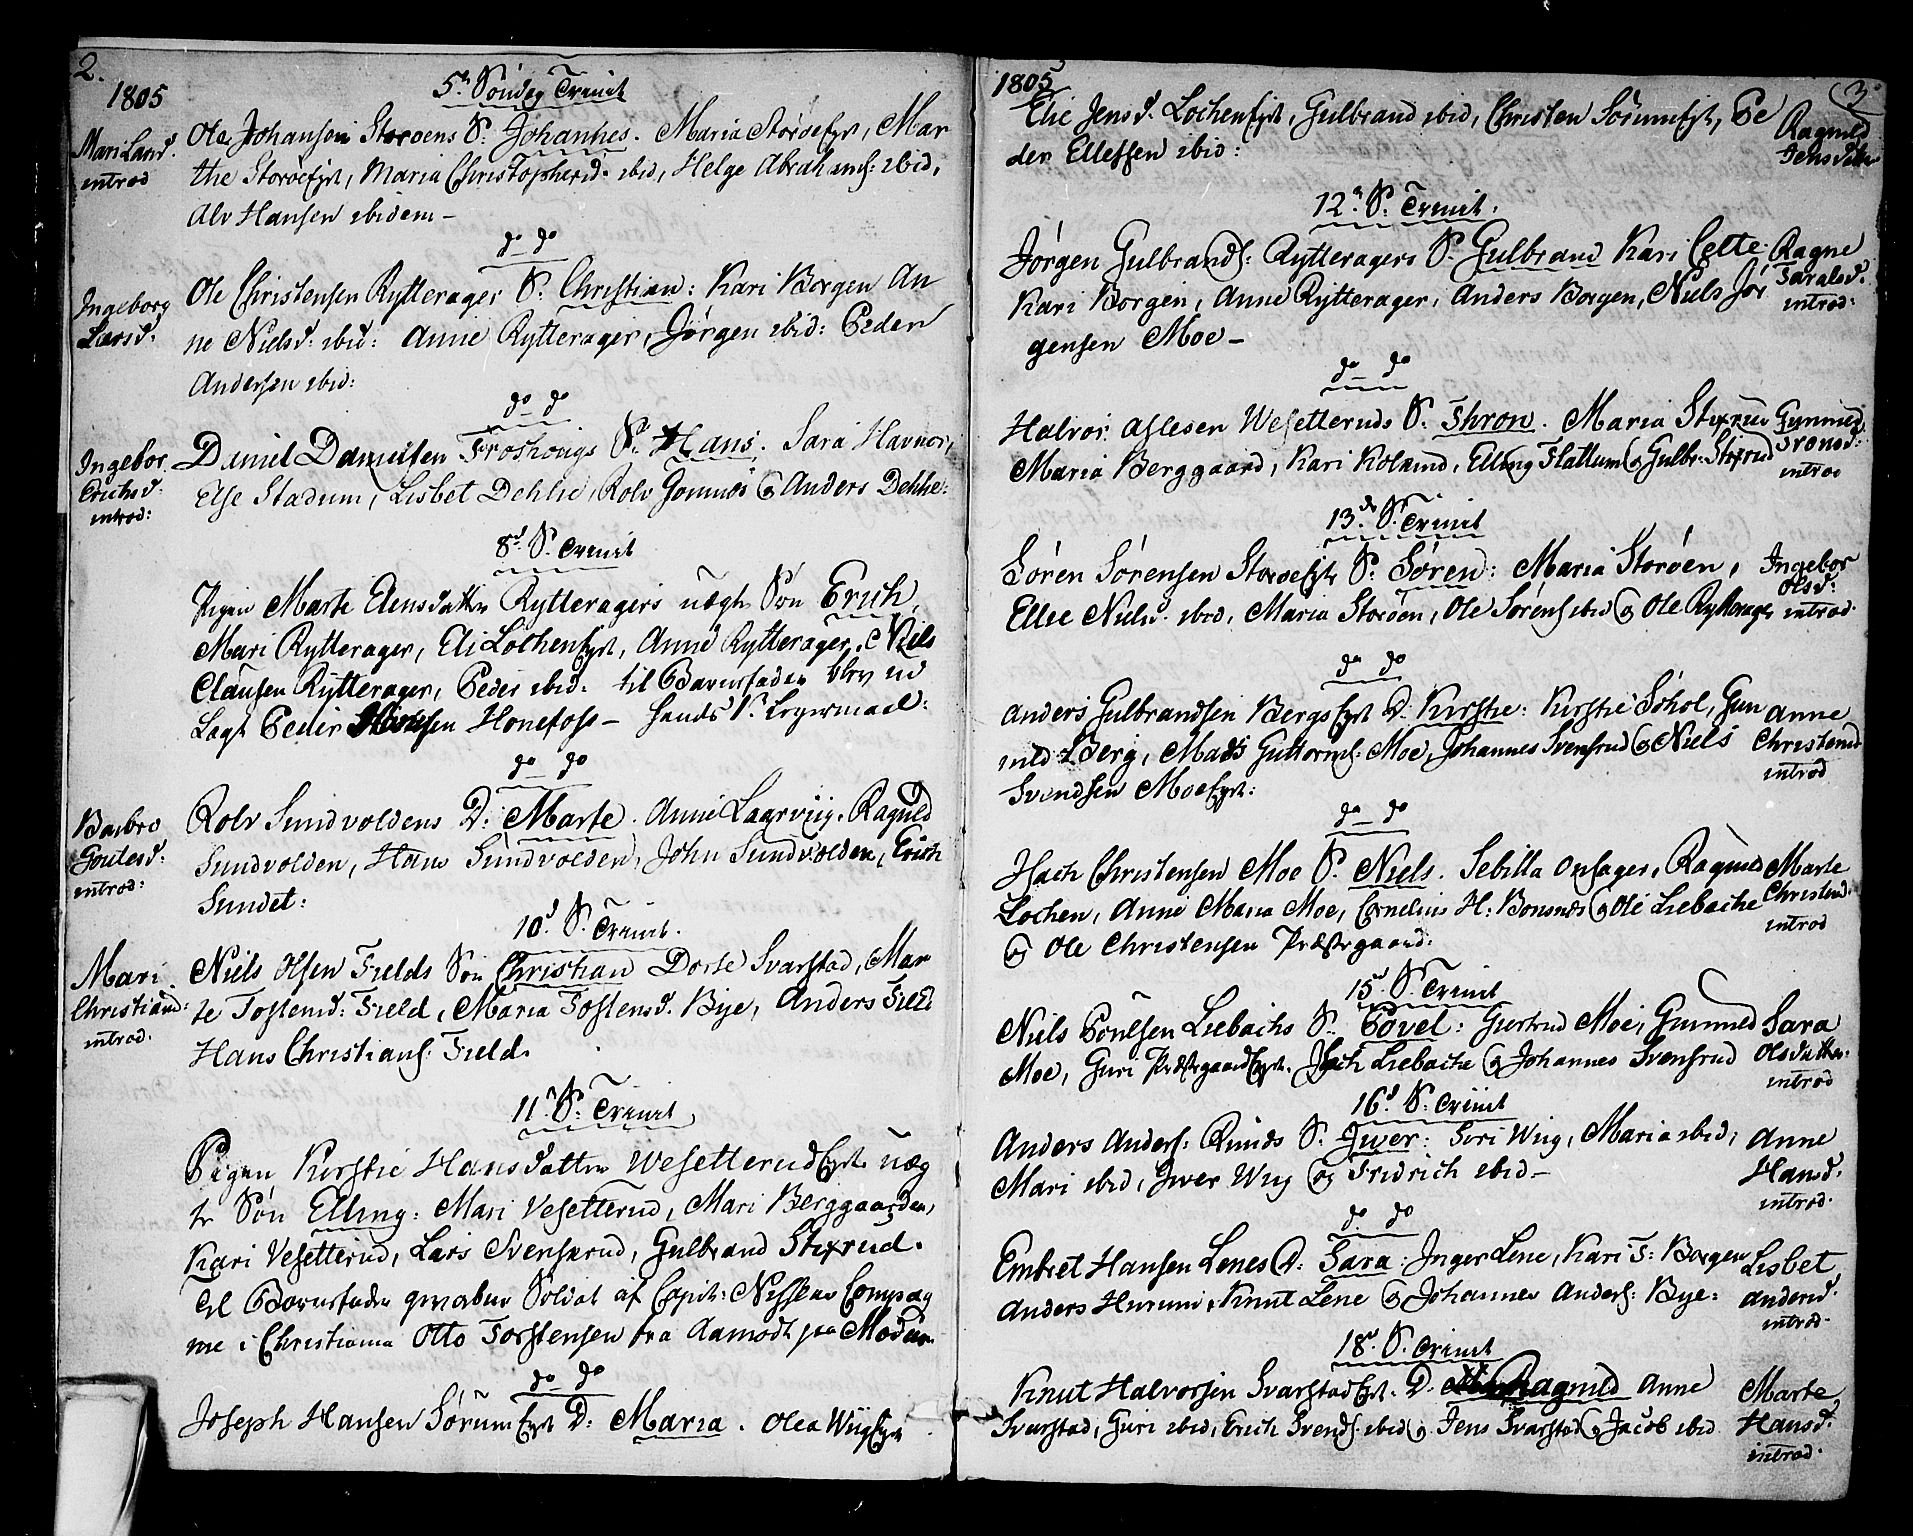 2.
1805
5te Søndag Trinit
Mari Larsd. introd
Ole Johansen Storoens S: Johannes. Maria Storøeeyt, Mar
the Storøeeyt, Maria Christophersd. ibid, Helge Abrahams: ibid,
Alv Hansen ibidem -
do do
Ingeborg Larsd.
Ole Christensen Rytterager S: Christian: Kari Borgen An
ne Nielsd. ibid: Anne Rytterager, Jørgen ibid: Peder
Andersen ibid:
do - do
Ingebor Erichsd. introd:
Daniel Danielsen Froshougs S: Hans. Sara Havnor,
Else Stadum, Lisbet Dehlie, Rolv Gomnes og Anders Dehlie:
8d. S. Trinit
Pigen Marte Elensdatter Rytteragers uægte Søn Erich,
Mari Rytterager, Eli Lochen Eyt, Anne Rytterager, Niels
Clausen Rytterager, Peder ibid. til Barnefader blev ud
Lagt Peder Hansen Honefoss - hends 1ste Legermaal:
do - do
Barbro Goutesd: introd:
Rolv Sundvoldens D: Marte. Anne Lagrviig. Ragnild
Sundvolden, Hans Sundvolden, John Sundvolden, Erich
Sundet:
10d. S. Trinit.
Mari Christiand: introd.
Niels Olsen Fields Søn Christian Dorte Svarstad, Mar
te Tostensd: Field, Maria Tostensd. Bye, Anders Field
Hans Christians: Field.
11te S: Trinit
Pigen Kirstie Hansdatter Wesetterud Eyt. uæg
te Søn Elling: Mari Vesetterud, Mari Berggaarden,
Kari Vesetterud, Lars Svenserud, Gulbrand Stixrud.
Til Barnefader gevorben Soldat af Capit: Nissens Compag
nie i Christiania Otto Torstensen fra Aamodt paa Modum
do do
Joseph Hansen Sørum Eyt D: Maria. Olea Wiig Eyt
1805
3
Elie Jensd. Lochen Eyt, Gulbrand ibid, Christen Sørum Eyt, Pe
der Ellefsen ibid:
Ragnild Jensdatter
12te S: Trinit.
Jørgen Gulbrands: Rytteragers S. Gulbrand Kari Tette
Kari Borgen, Anne Rytterager, Anders Borgen, Niels Jør
gensen Moe -
Ragne Taralsd. introd:
do - do
Halvor Aslesen Wesetteruds S: Thron. Maria Stixrud
Maria Berggaard, Kari Kolsrud, Elling Flattum og Gulbr. Stixrud
Gunnild Tronsd: introd
13de S. Trinit
Søren Sørensen Storøe Eyt S: Søren: Maria Storøen,
Ellie Nielsd. ibid, Maria Storøen, Ole Sørens ibid og Ole Rytterager
Ingebor Olsd: introd.
do do
Anders Gulbrandsen Bergs Eyt D. Kirstie: Kirstie Søhol, Gun
nild Berg, Mads Guttorms: Moe, Johannes Svensrud og Niels
Svendsen Moe Eyt:
Anne Christensd introd
do - do
Isach Christensen Moe S. Niels. Sebilla Onsager, Ragnild
Lochen, Anne Maria Moe, Cornelius H: Bonsnes og Ole Liebache
og Ole Christensen Præstegaard:
Marte Christensd. introd
15d S. Trinit
Niels Poulsen Liebachs S. Povel: Giertrud Moe, Gunnild
Moe, Guri Præstegaard Eyt. Isach Liebache og Johannes Svensrud
Sara Olsdatter. introd
16d S: Trinit
Anders Anders: Runds S: Iwer: Siri Wiig, Maria ibid,
Mari ibid, Iwer Wiig og Fridrich ibid -
Anne Hansd. introd.
do. do
Embret Hansen Lenes D: Sara. Inger Lene, Kari T: Borgen
Anders Hurum, Knut Lene og Johannes Anders: Bye:
Lisbet Andersd. introd.
18d. S. Trinit
Knut Halvorsen Svarstad Eyt. D. Ragnild Anne
Svarstad, Guri ibid, Erich Svends. ibid og Jens Svarstad og Jacob ibid
Marte Hansd. introd.